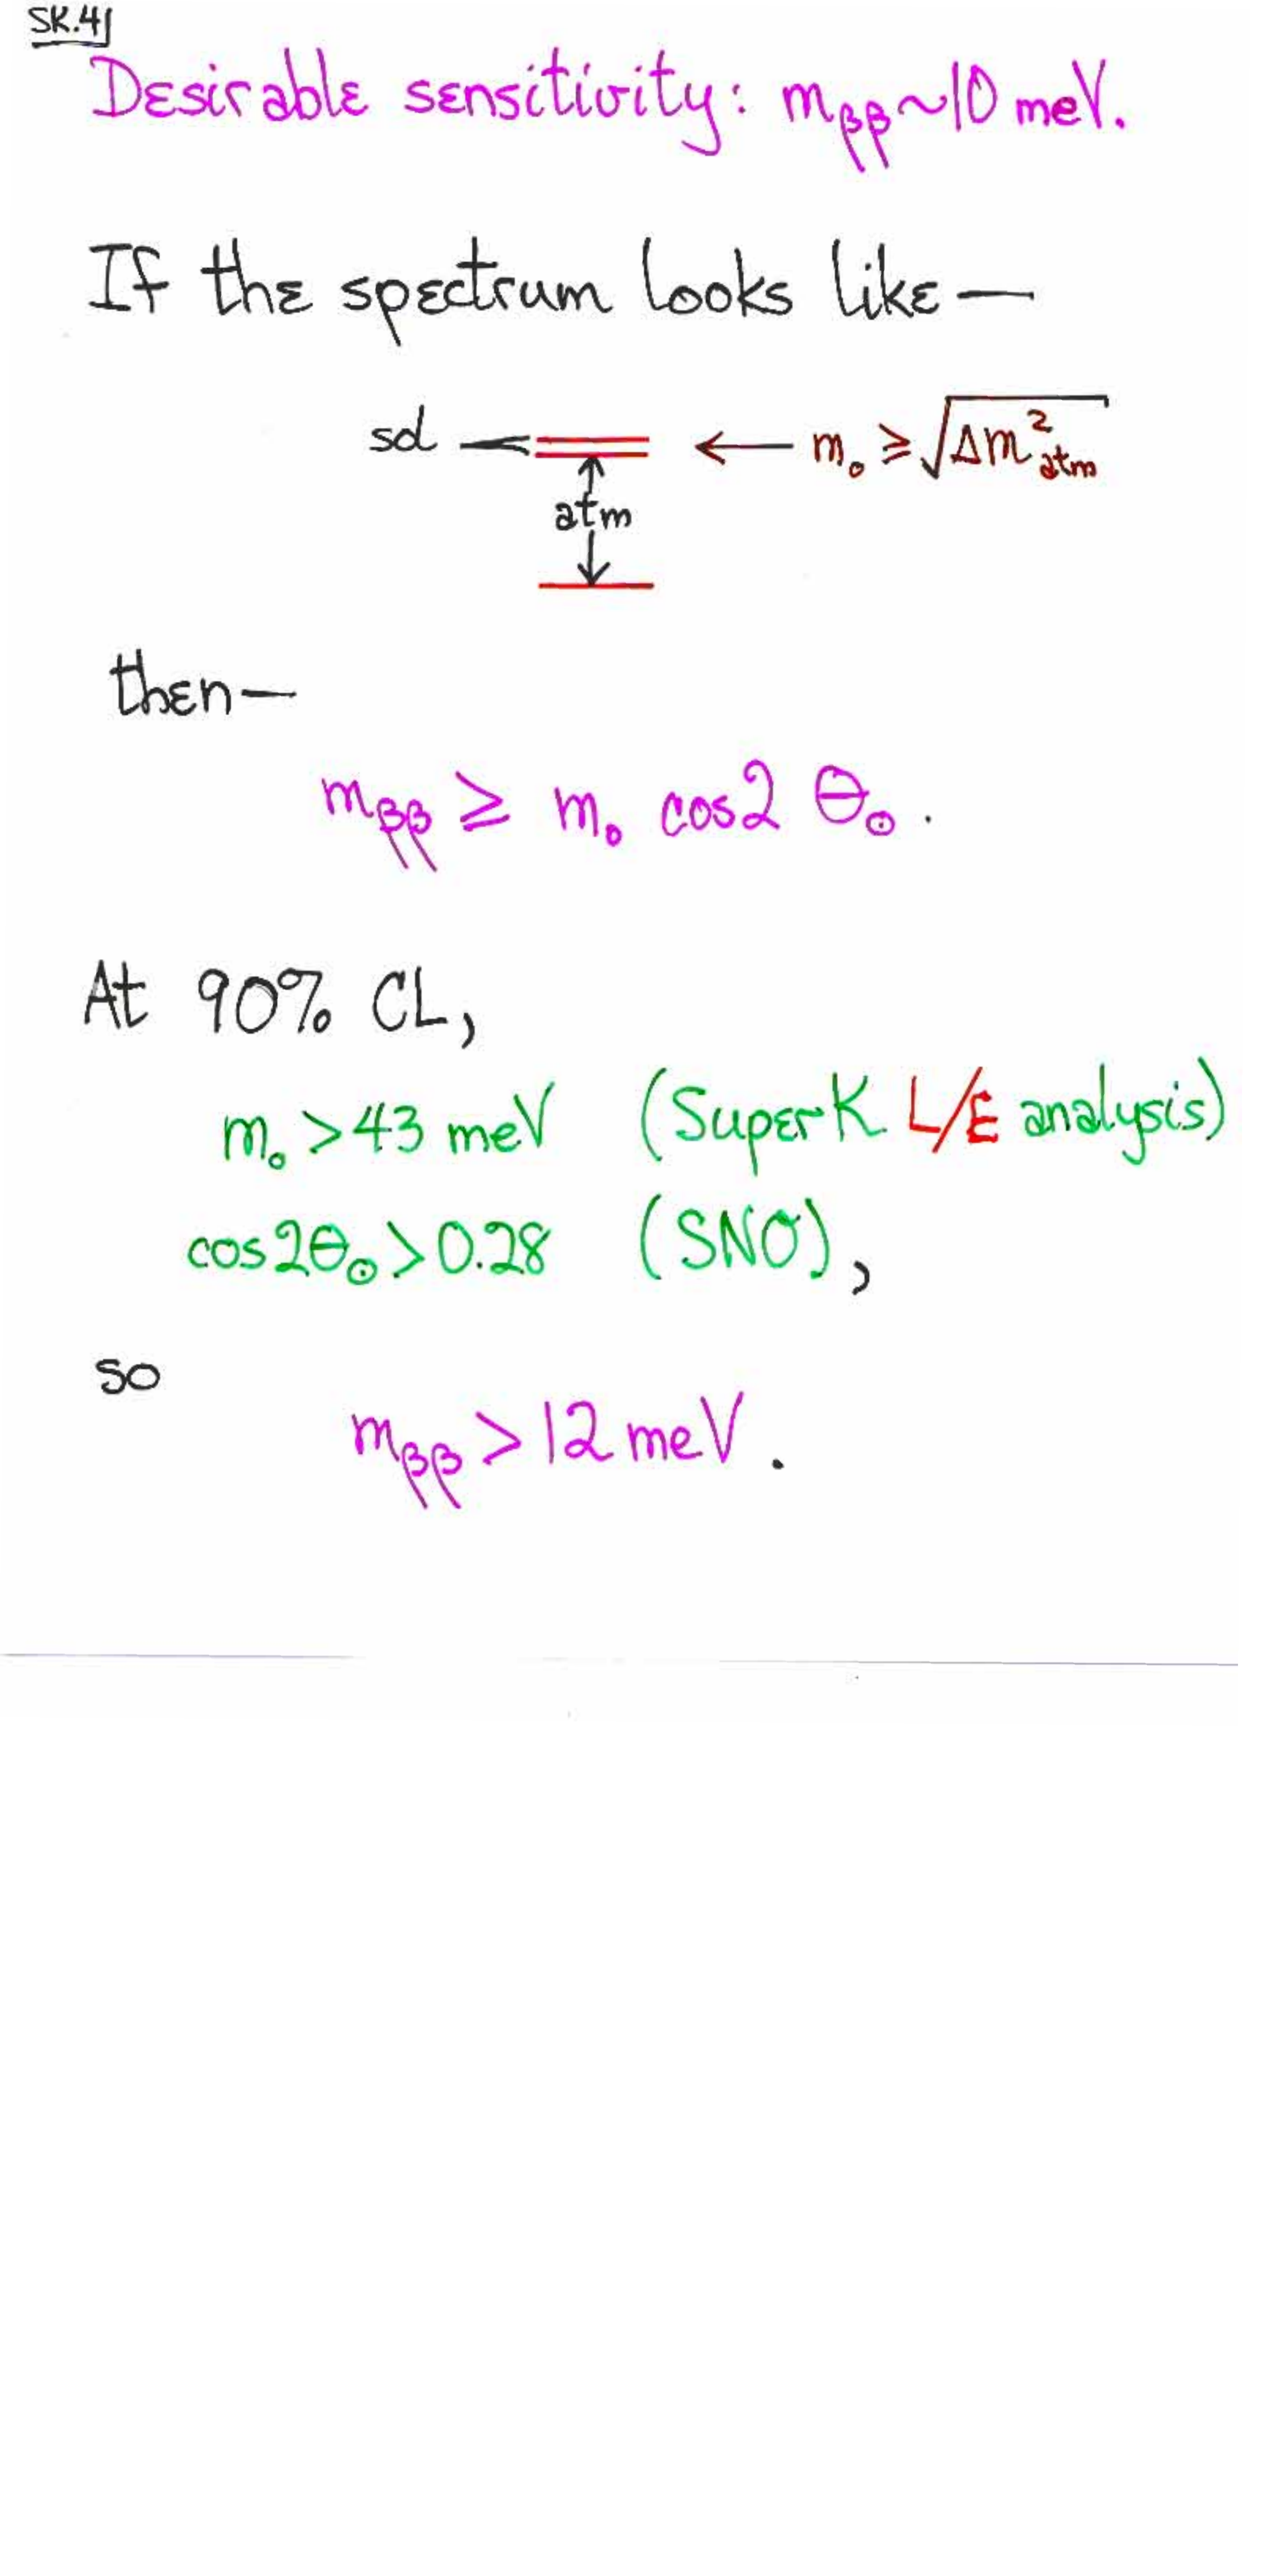 SK.41
Desirable sensitivity: mββ ~ 10 meV.
If the spectrum looks like —
sol ← m₀ ≥ √Δm²atm
atm
then —
mββ ≥ m₀ cos2 θ⊙ .
At 90% CL,
m₀ > 43 meV (SuperK L/E analysis)
cos2θ⊙ > 0.28 (SNO),
so
mββ > 12 meV .